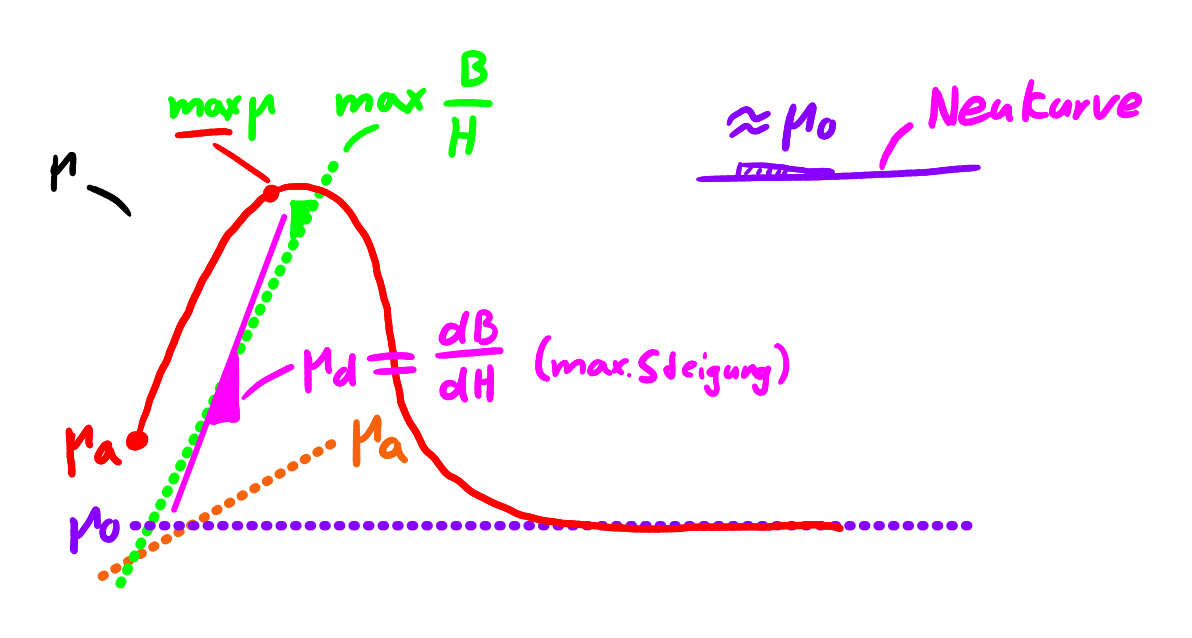 max μ
max B/H
≈ μ₀
Neukurve
μ
μd = dB/dH (max. Steigung)
μa
μa
μ₀